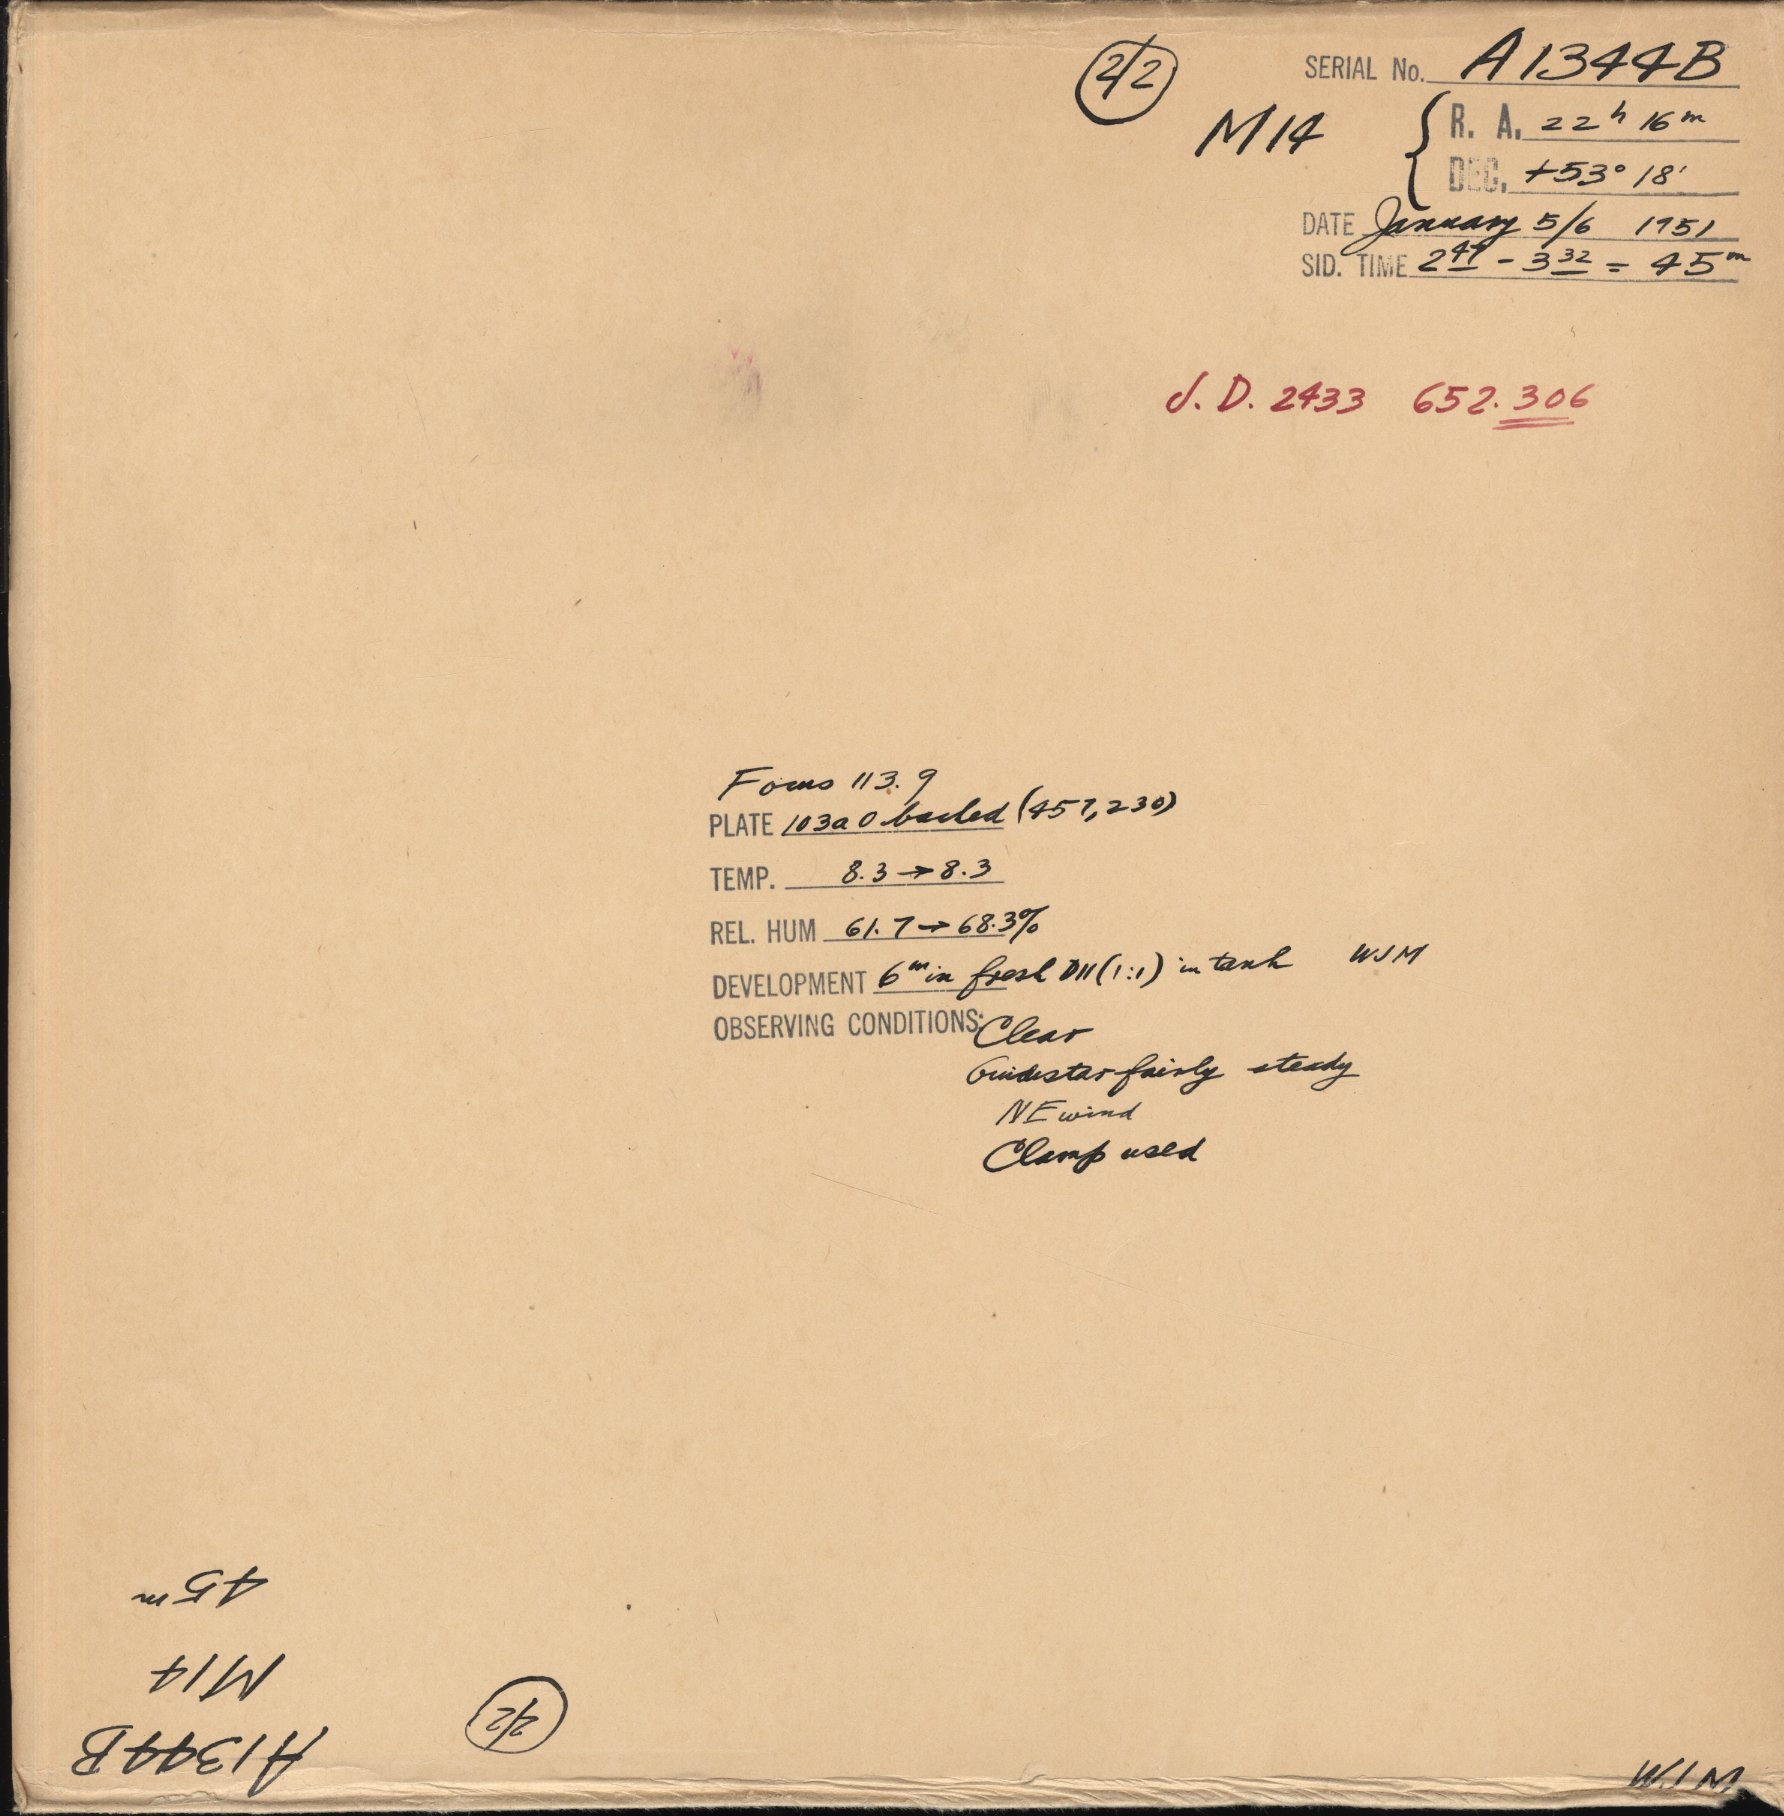 2/2
SERIAL No. A1344B
M14
R. A. 22h 16m
DEC. +53° 18'
DATE January 5/6 1951
SID. TIME 2 47 - 3 32 = 45m
J.D. 2433 652.306
Focus 113.9
PLATE 103a O backed (457,230)
TEMP. 8.3 → 8.3
REL. HUM 61.7 → 68.3%
DEVELOPMENT 6m in fresh D11 (1:1) in tank WJM
OBSERVING CONDITIONS: Clear
Guidestar fairly steady
NE wind
Clamp used
45m
M14
A1344B
2/2
WJM